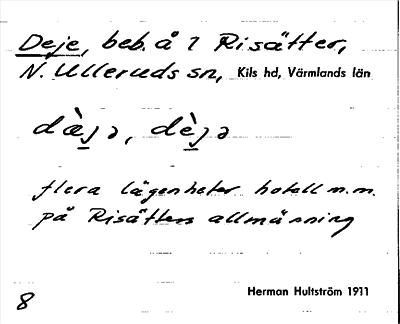 Deje, beb. å 1 Risätter,
N. Ulleruds sn, Kils hd, Värmlands län
dàjə, dèjə
flera lägenheter hotell m.m.
på Risätters allmänning
Herman Hultström 1911
8